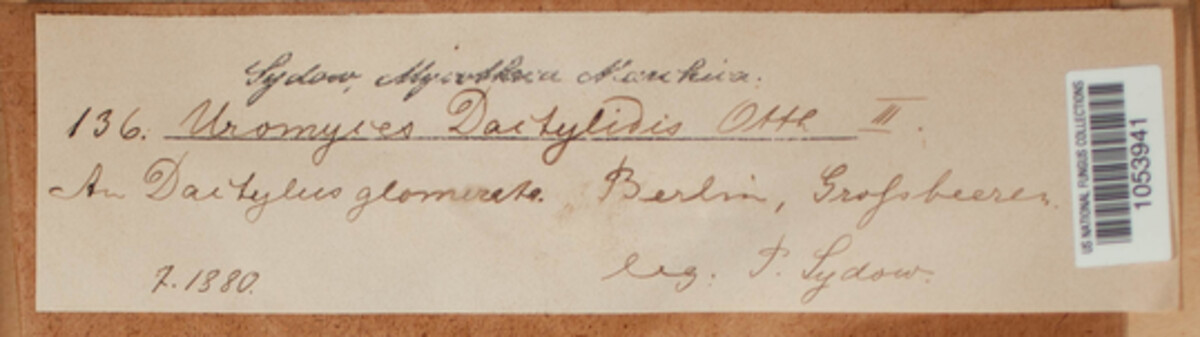 Sydow, Mycotheca Marchica.
136. Uromyces Dactylidis Otth III.
An Dactylus glomerata. Berlin, Großbeeren.
7. 1880.
leg. P. Sydow.
US NATIONAL FUNGUS COLLECTIONS
1053941